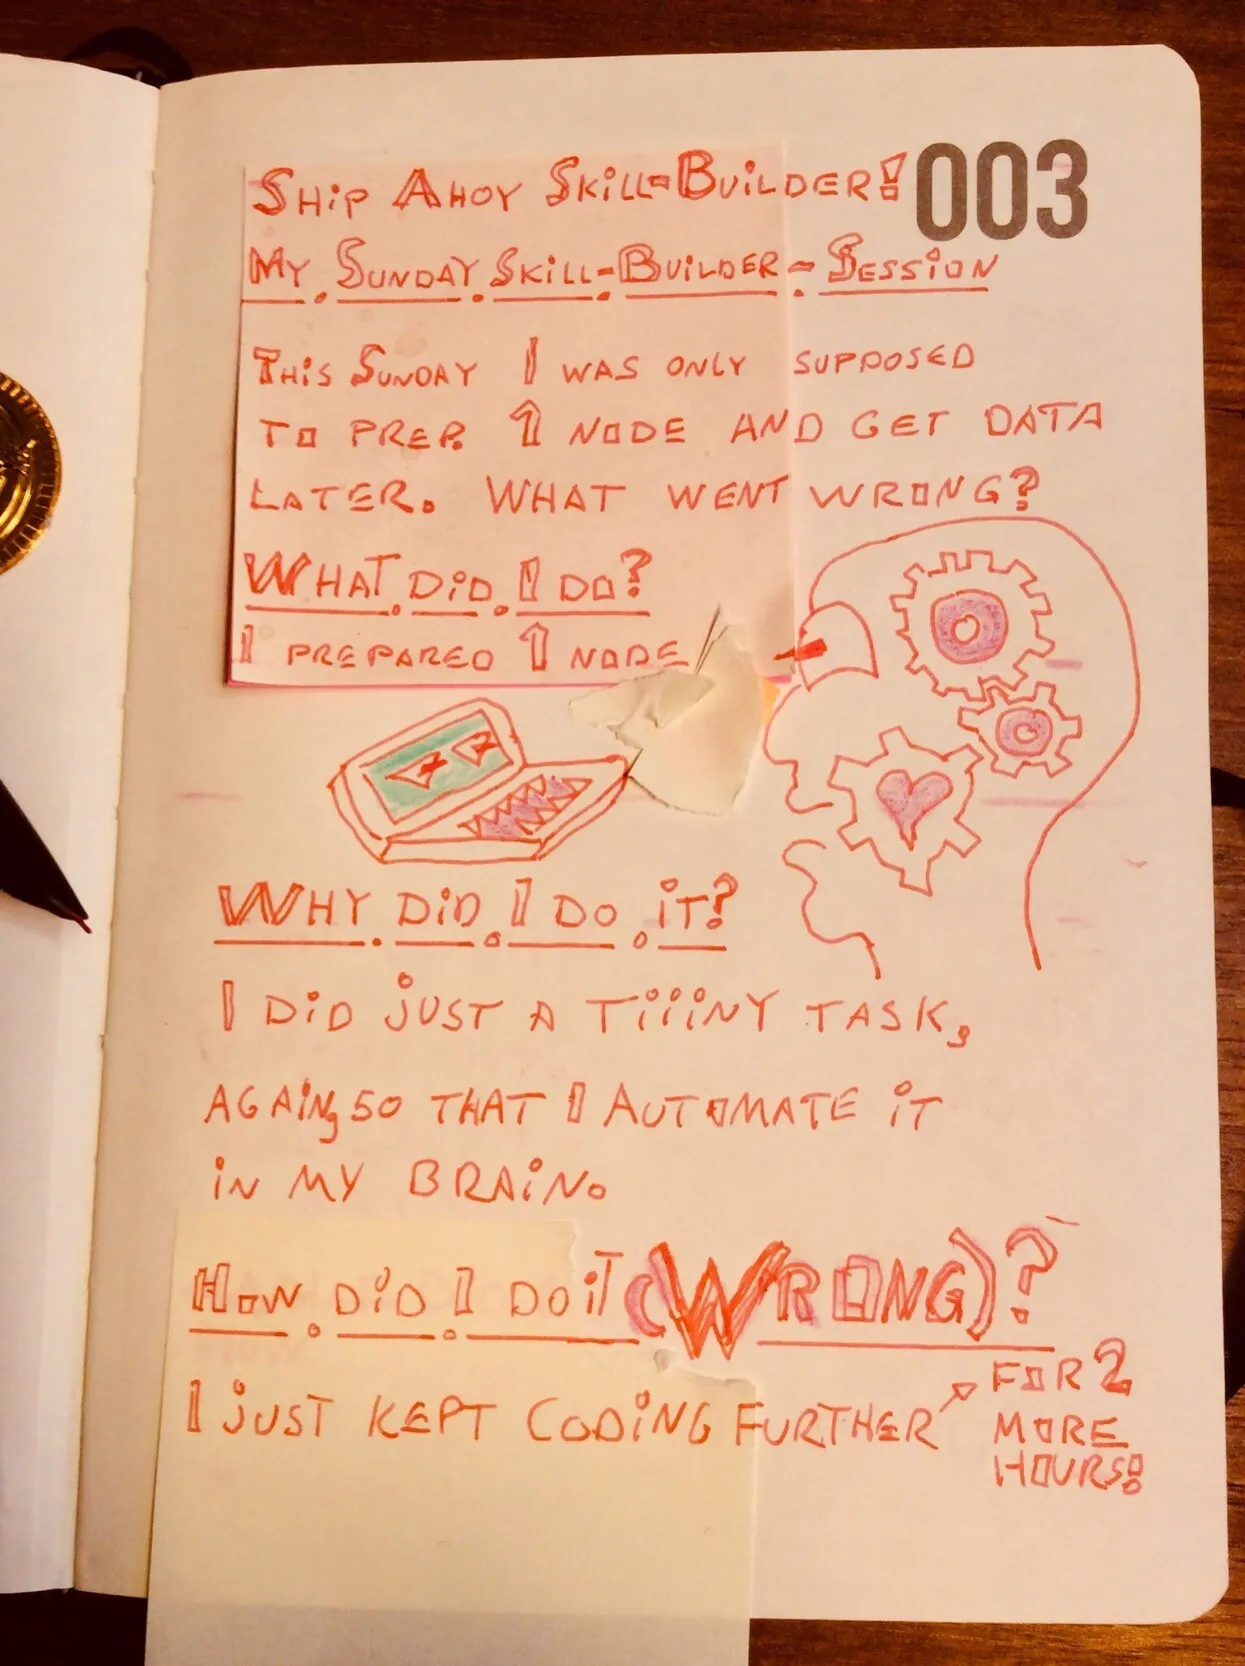 SHiP AHOY SKiLL-BUiLDER! 003
MY SUNDAY SKiLL-BUiLDER-SESSiON
THiS SUNDAY I WAS ONLY SUPPOSED
TO PREP. 1 NODE AND GET DATA
LATER. WHAT WENT WRONG?
WHAT DiD I DO?
I PREPARED 1 NODE
WHY DiD I DO iT?
I DiD jUST A TiiiNY TASK,
AGAiN, SO THAT I AUTOMATE iT
iN MY BRAiN.
HOW DiD I DO iT (WRONG)?
I jUST KEPT CODiNG FURTHER
FOR 2
MORE
HOURS!